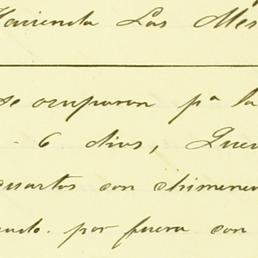 Hacienda Las Mes
se ocuparon pª la
- 6 dias, Quer
cuartos con chimenea
ando. por fuera con